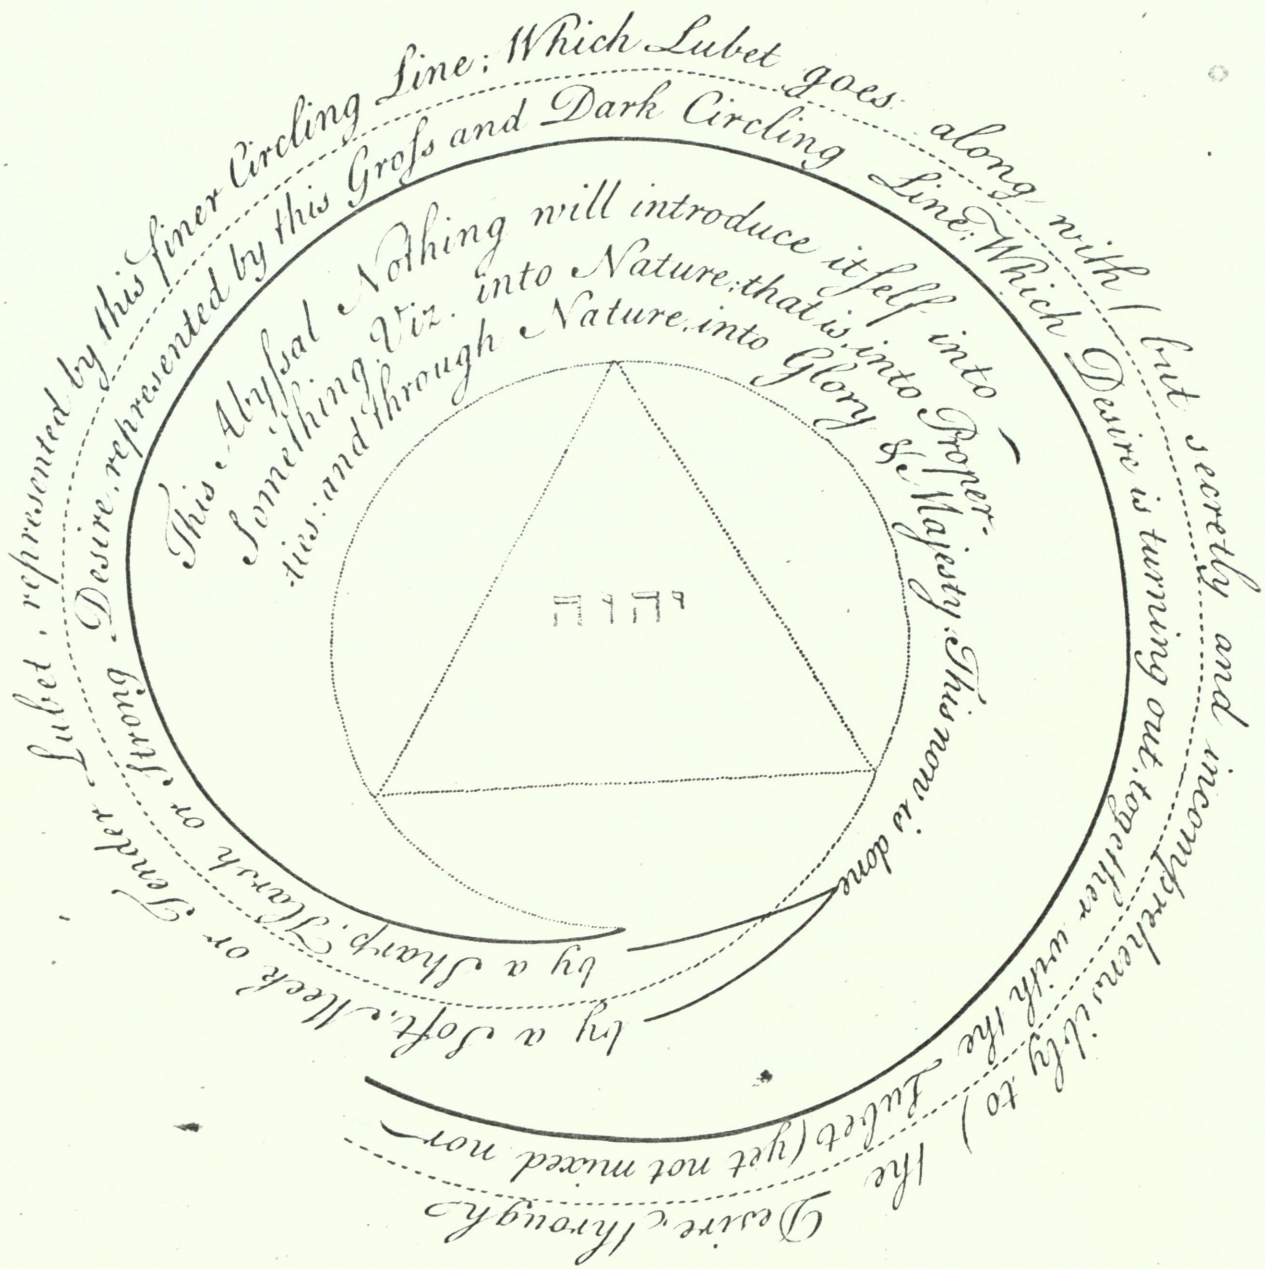 This Abyſsal Nothing will introduce itſelf into
Something, Viz. into Nature; that is, into Proper-
ties: and through Nature, into Glory & Majesty. This now is done
by a Sharp, Harsh or Strong Desire, represented by this Groſs and Dark Circling Line; Which Desire is turning out, together with the Lubet (yet not mixed nor
by a Soft, Meek or Tender Lubet, represented by this finer Circling Line; Which Lubet goes along with (but secretly and incomprehensibly to) the Desire, through
יהוה